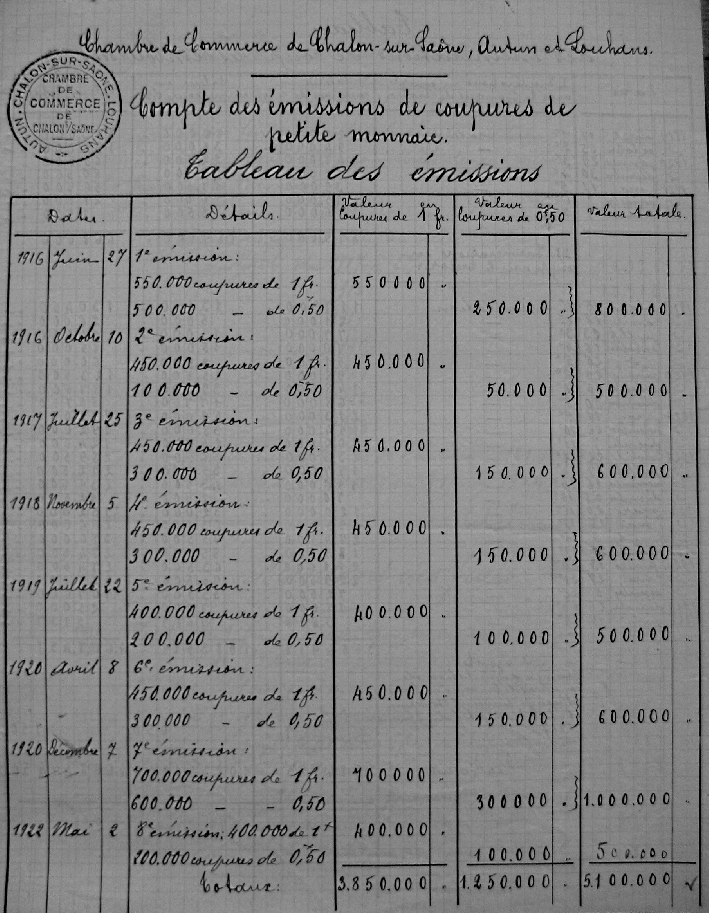 Chambre de Commerce de Chalon-sur-Saône, Autun et Louhans.
AUTUN. CHALON-SUR-SAÔNE. LOUHANS
CHAMBRE
DE
COMMERCE
DE
CHALON S/SAÔNE
Compte des émissions de coupures de
petite monnaie.
Tableau des émissions
Dates. Détails. Valeur en coupures de 1 fr. Valeur en coupures de 0,50 Valeur totale.
1916 Juin 27 1e émission:
550.000 coupures de 1 fr. 550000 "
500.000 — de 0,50 250.000 " 800.000 "
1916 Octobre 10 2e émission:
450.000 coupures de 1 fr. 450.000 "
100.000 — de 0,50 50.000 " 500.000 "
1917 Juillet 25 3e émission:
450.000 coupures de 1 fr. 450.000 "
300.000 — de 0,50 150.000 " 600.000 "
1918 Novembre 5 4e émission:
450.000 coupures de 1 fr. 450.000 "
300.000 — de 0,50 150.000 " 600.000 "
1919 Juillet 22 5e émission:
400.000 coupures de 1 fr. 400.000 "
200.000 — de 0,50 100.000 " 500.000 "
1920 Avril 8 6e émission:
450.000 coupures de 1 fr. 450.000 "
300.000 — de 0,50 150.000 " 600.000 "
1920 Décembre 7 7e émission:
700.000 coupures de 1 fr. 700000 "
600.000 — — 0,50 300000 " 1.000.000 "
1922 Mai 2 8e émission; 400.000 de 1f 400.000 "
200.000 coupures de 0,50 100.000 " 500.000
Totaux: 3.850.000 " 1.250.000 " 5.100.000 "